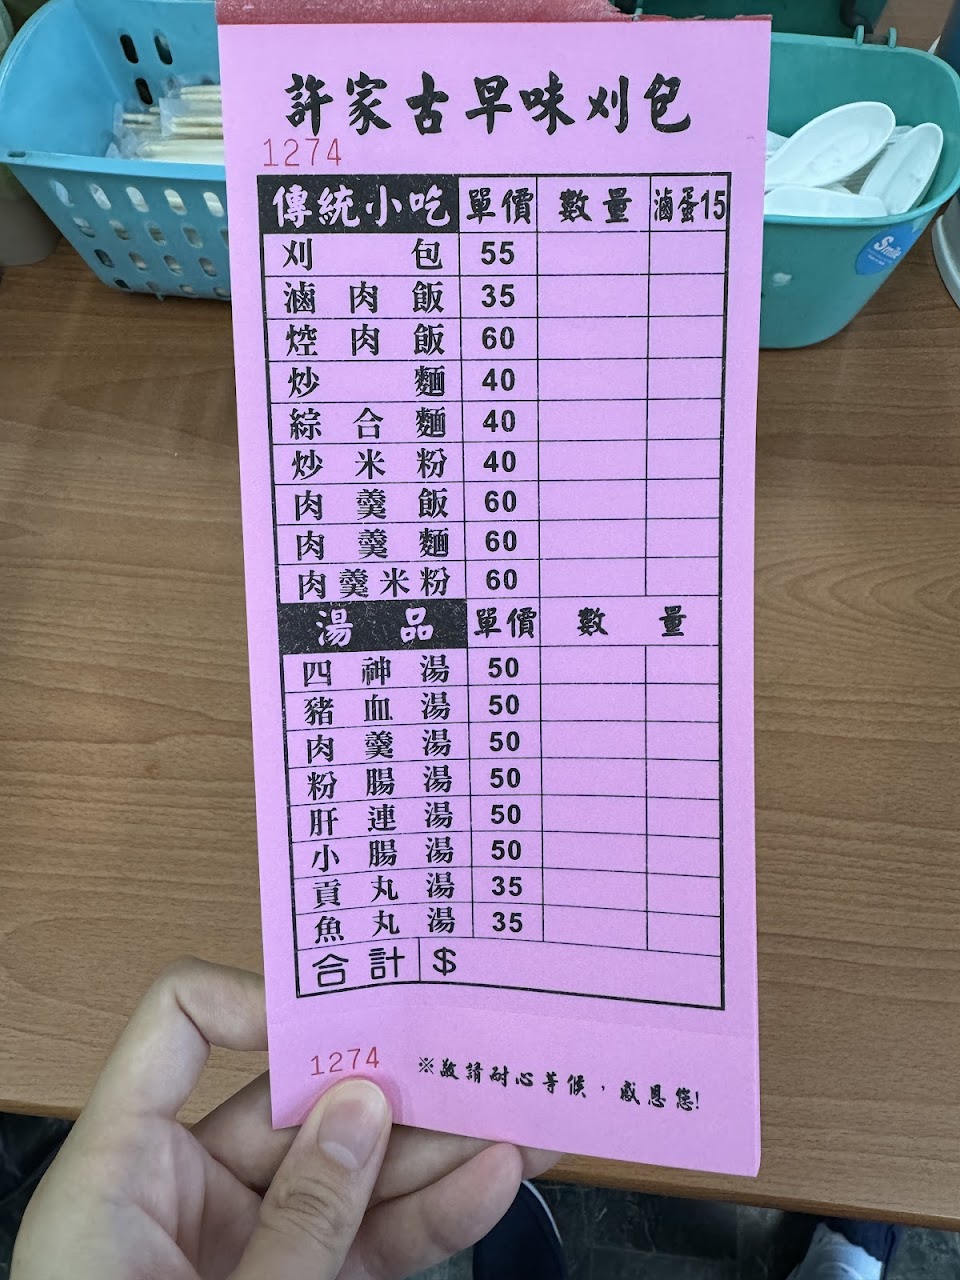 許家古早味刈包
1274
傳統小吃 單價 數量 滷蛋15
刈包 55
滷肉飯 35
焢肉飯 60
炒麵 40
綜合麵 40
炒米粉 40
肉羹飯 60
肉羹麵 60
肉羹米粉 60
湯品 單價 數量
四神湯 50
豬血湯 50
肉羹湯 50
粉腸湯 50
肝連湯 50
小腸湯 50
貢丸湯 35
魚丸湯 35
合計 $
1274 ※敬請耐心等候，感恩您!
Smile